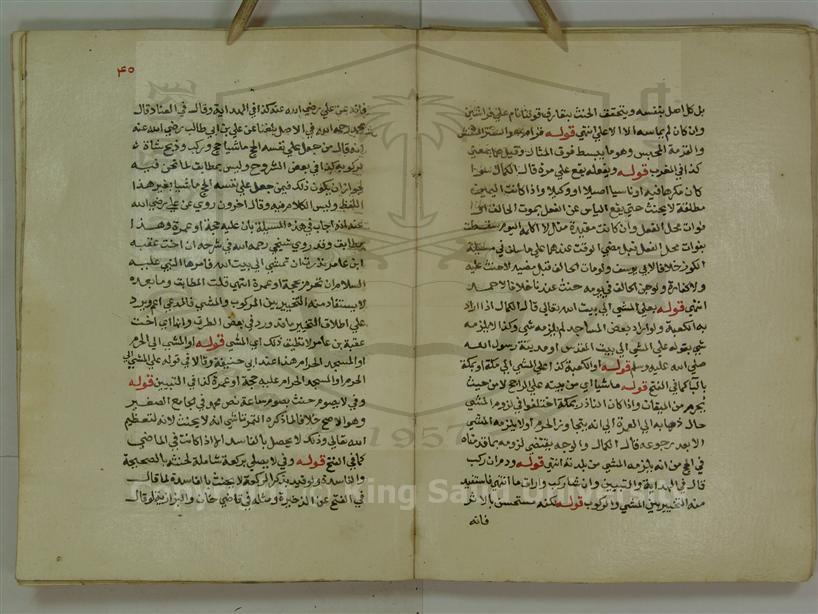 بل كل اصل بنفسه ويتحقق الحنث بيقارق قولنا نام على فراشين
وان كان لم يماسه الا الاعلى انتهى قوله فرام هو الستر الرقيق
والقرمة المحبس وهو ما يبسط فوق المثال وقيل هما بمعنى
كذا في المغرب قوله ويفعله يقع على مرة قال الكمال سوا
كان مكرها فيه او ناسيا اصيلا او وكيلا واذا كانت اليمين
مطلقة لا يحنث حتى يقع الياس عن الفعل بموت الحالف او
فوات محل الفعل وان كانت مقيدة مثل لا اكلمه اليوم سقطت
بفوات محل الفعل قبل مضي الوقت عندهما على ما سلف في مسئلة
الكوز خلافا لابي يوسف ولو مات الحالف قبل مضيه لا حنث عليه
ولا كفارة ولو جن الحالف في يومه حنث عندنا خلافا لاحمد
انتهى قوله بعلي المشي الى بيت الله تعالى قال الكمال اذا اراد
به الكعبة ولو اراد بعض المساجد لم يلزمه شي وكذا لا يلزمه
شي بقوله علي المشي الى بيت المقدس او مدينة رسول الله
صلى الله عليه وسلم قوله او الكعبة كذا علي المشي الى مكة او بمكة
بالباء كما في الفتح قوله ماشيا اي من بيته على الراجح لا من حيث
يحرم من الميقات واذا كان الناذر بمكة اختلفوا في لزوم المشي
حال ذهابه الى العمرة الى انه يتجاوز الحرم او لا يلزمه المشي
الا بعد رجوعه قال الكمال والوجه يقتضي لزومه بما قدمناه
في الحج من انه يلزمه المشي من بلده انتهى قوله ودم ان ركب
قال في الهداية والتبيين وان شا ركب واراق دما انتهى فاستفيد
منه التخيير بين المشي والركوب قوله لكنه مستحسن بالاثر
فانه
٤٥
فانه عن علي رضي الله عنه كذا في الهداية وقال في العناد قال
محمد رحمه الله في الاصل بلغنا عن علي بن ابي طالب رضي الله عنه
انه قال من جعل على نفسه الحج ماشيا حج وركب وذبح شاة
لركوبه كذا في بعض الشروح وليس بمطابق لما نحن فيه
لجواز ان يكون ذلك فيمن جعل على نفسه الحج ماشيا بغير هذا
اللفظ وليس الكلام فيه وقال اخرون روي عن علي رضي الله
عنه انه اجاب في هذه المسئلة بان عليه حجة او عمرة وهذا
مطابق وقد روى شيخي رحمه الله في شرحه ان اخت عقبه
ابن عامر نذرت ان تمشي الى بيت الله فامرها النبي عليه
السلام ان تحرم بحجة او عمرة انتهى قلت المطابق وما بعده
لا يستفاد منه التخيير بين الركوب والمشي فالمدعى اعم ويرد
على اطلاق التخيير ما قد ورد في بعض الطرق وانها اي اخت
عقبة بن عامر لا تطيق ذلك اي المشي قوله او المشي الى الحرم
او المسجد الحرام هذا عند ابي حنيفة وقالا في قوله علي المشي الى
الحرم او المسجد الحرام عليه حجة او عمرة كذا في التبيين قوله
وفي لا يصوم حنث بصوم ساعة نص محمد في الجامع الصغير
وهو الاصح خلافا لما ذكره التمرتاشي انه لا يحنث لانه لتعظيم
الله تعالى وذلك لا يحصل بالفاسد الا اذا كانت في الماضي
كما في الفتح قوله وفي لا يصلي بركعة شاملة لحنثه بالصحيحة
والفاسدة ولو قيد بذكر الركعة لا يحنث بالفاسدة لما قال
في الفتح عن الذخيرة ومثله في قاضي خان والبزازية لو قال